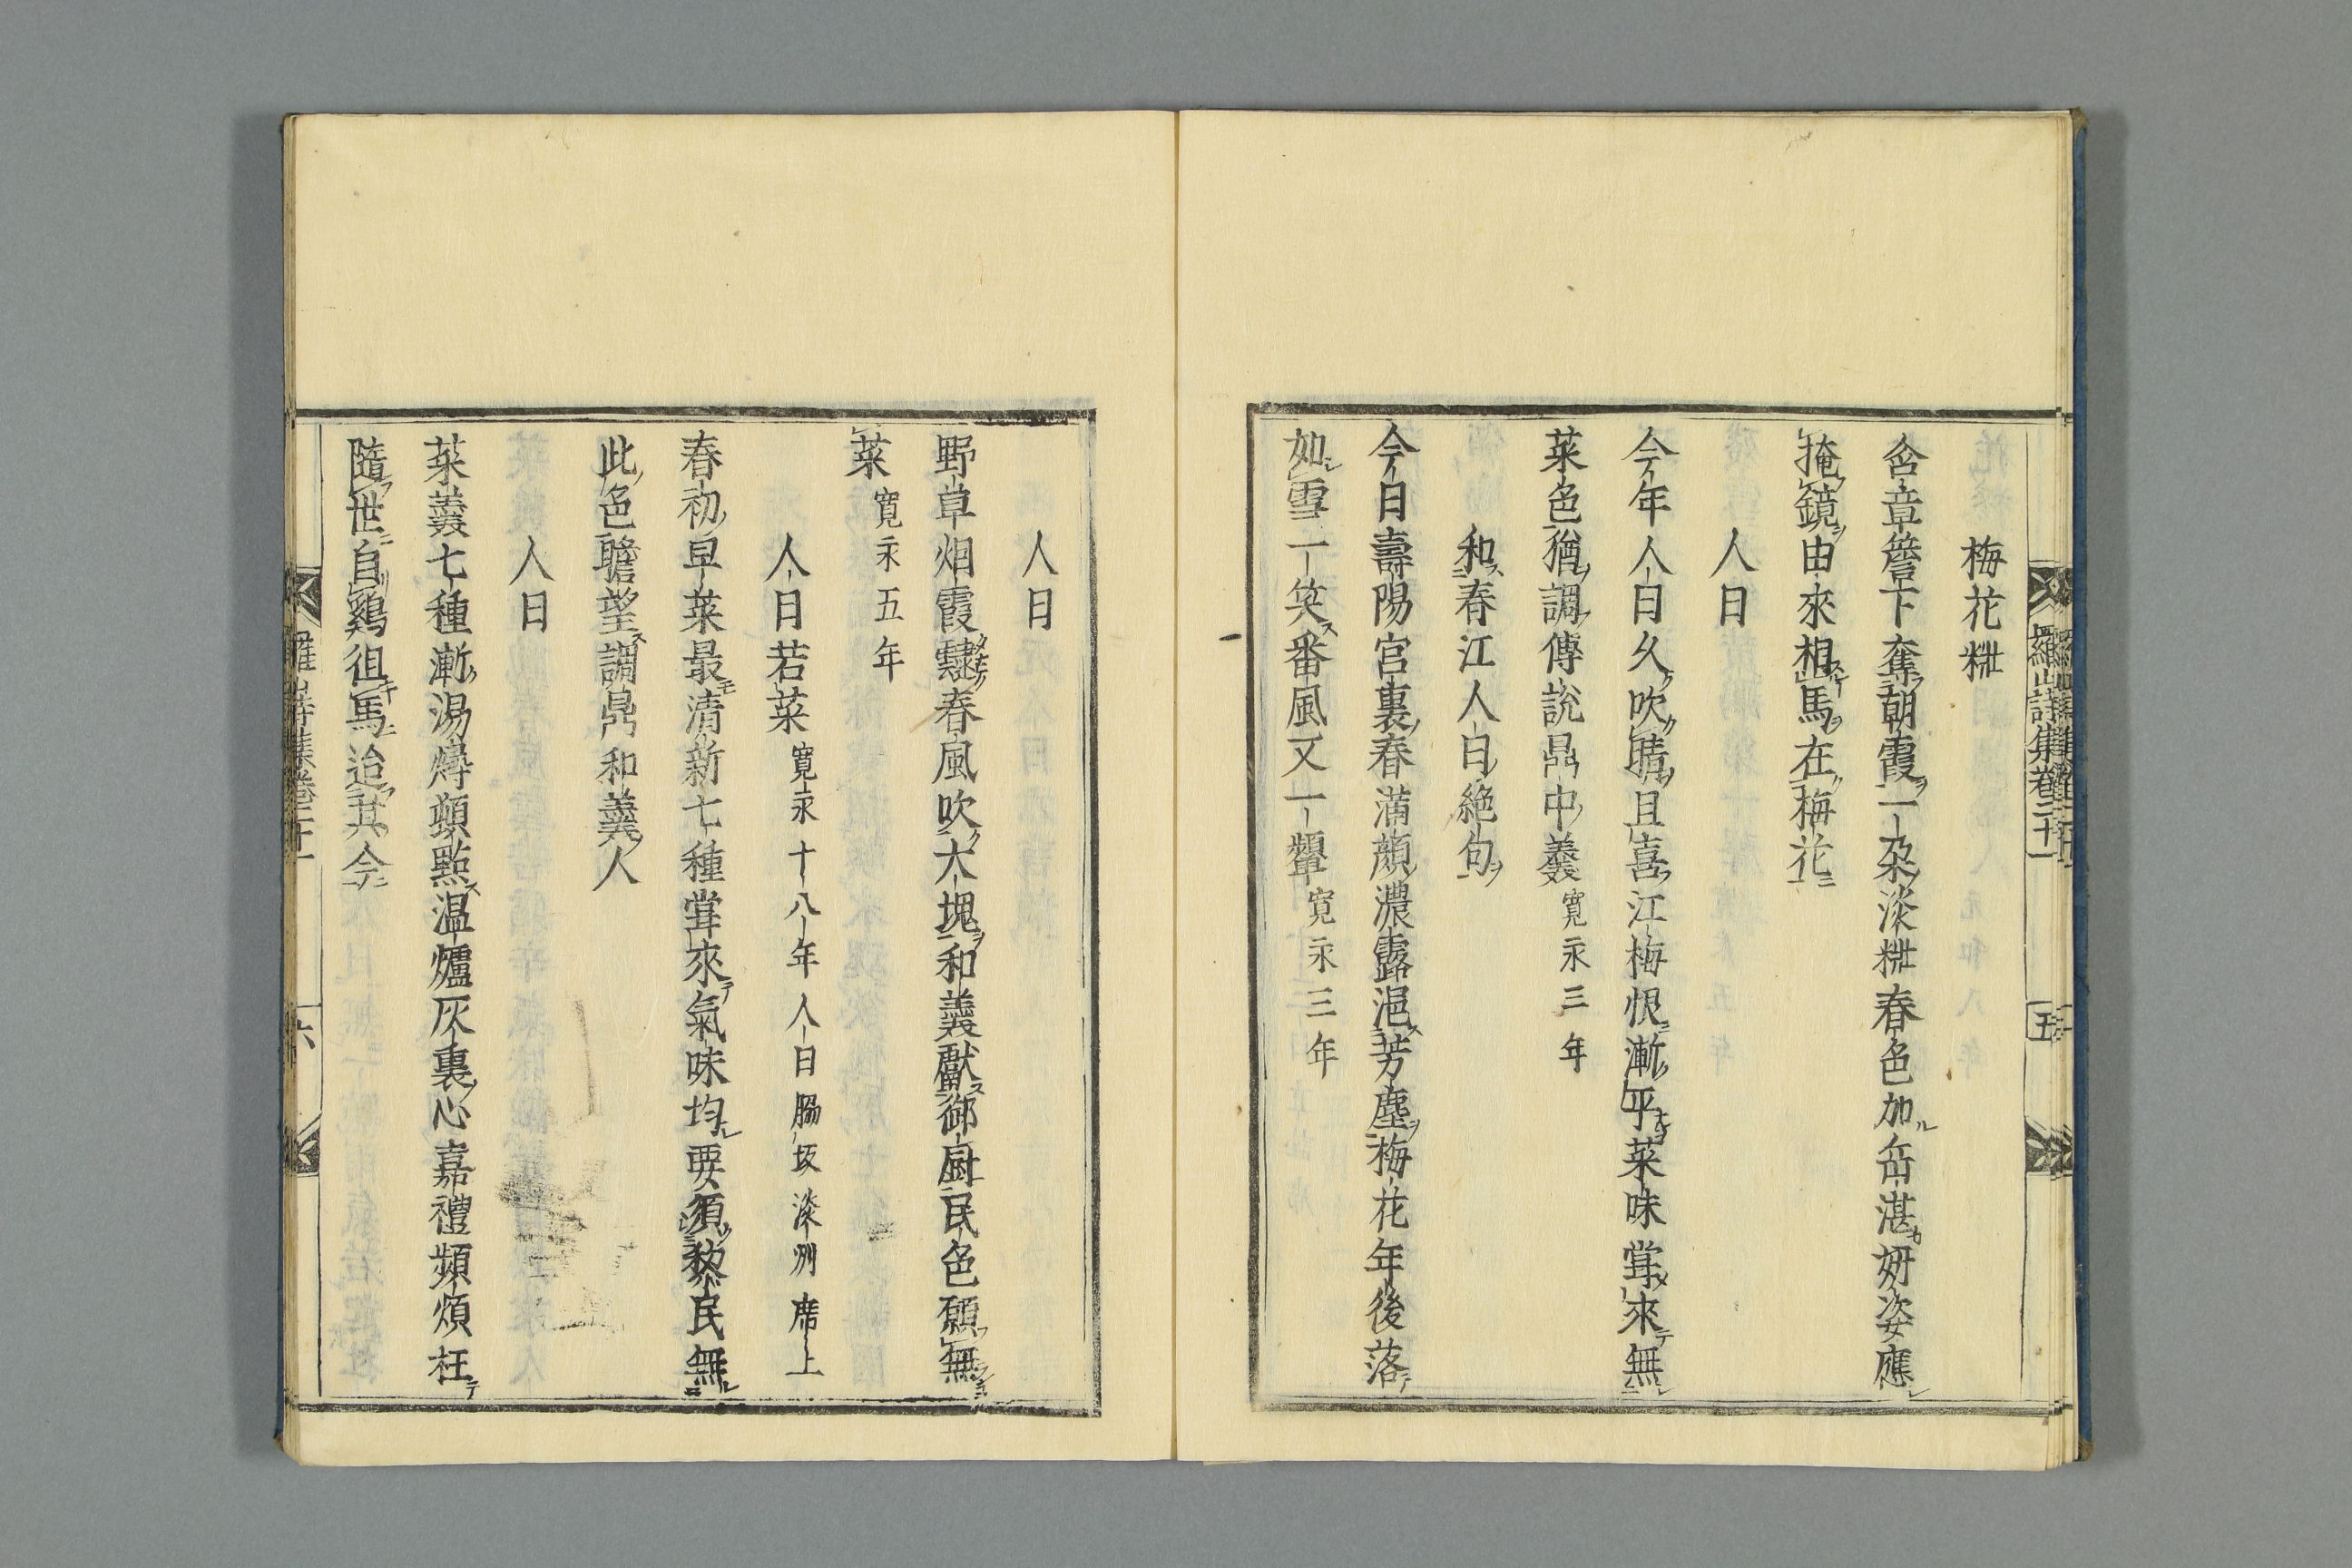 梅花粧
含章簷下奪朝霞一朶淡粧春色加缶湛妍姿應
掩鏡由來相馬在梅花
人日
今年人日久吹晴且喜江梅恨漸平菜味甞來無
菜色猶調傅說鼎中羹寛永三年
和春江人日絶句
今日壽陽宮裏春滿顏濃露浥芳塵梅花年後落
如雪一笑番風又一顰寛永三年
羅山詩集卷二十一
五
人日
野草烟霞靆春風吹大塊和羹獻御厨民色願無
菜寛永五年
人日若菜寛永十八年人日脇坂淡州席上
春初早菜最清新七種甞來氣味均要須黎民無
此色瞻望調鼎和羹人
人日
菜羹七種漸湯燖頻點温爐灰裏心嘉禮頻煩枉
隨世自鷄徂馬迨其今
六